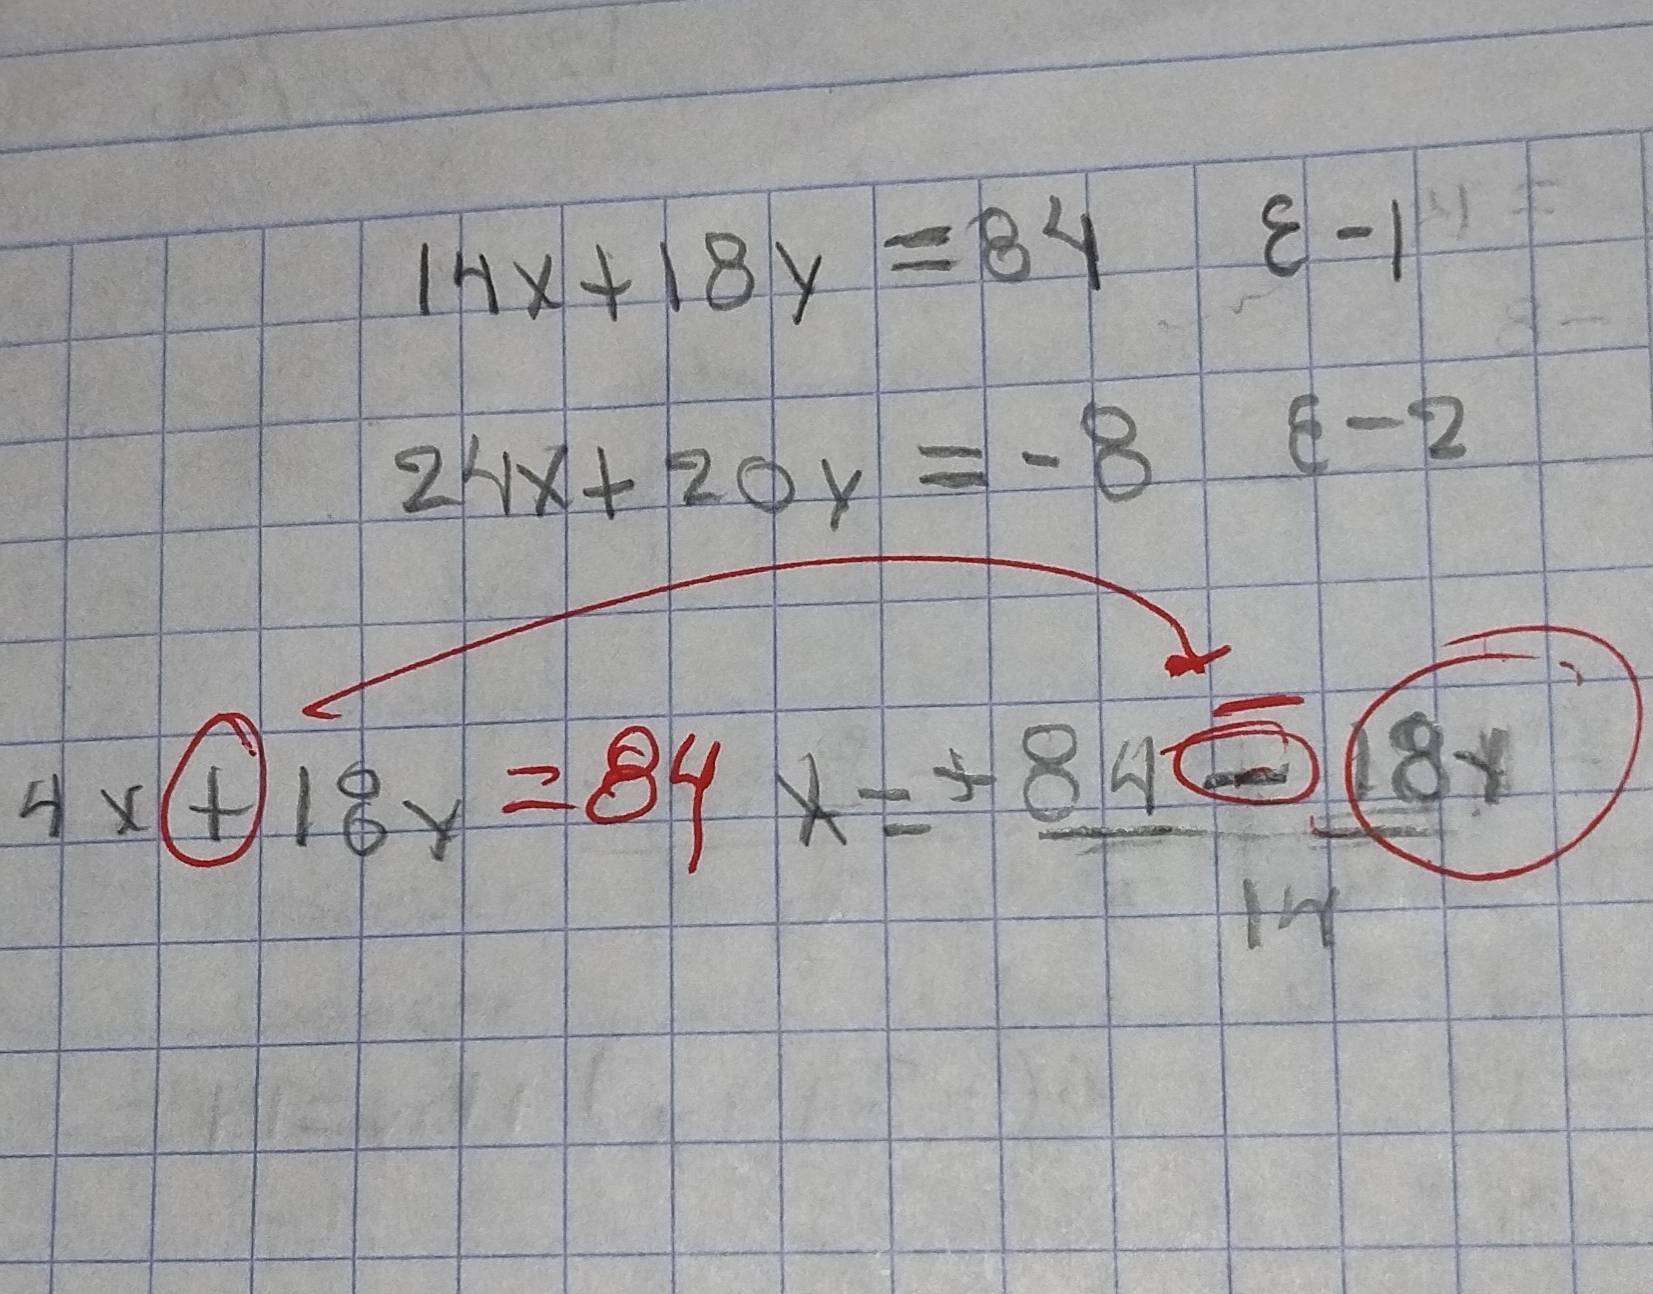 14x+18y=84 E-1
24x+20y=-8 E-2
4x+18y=84 x=+84-18y
14